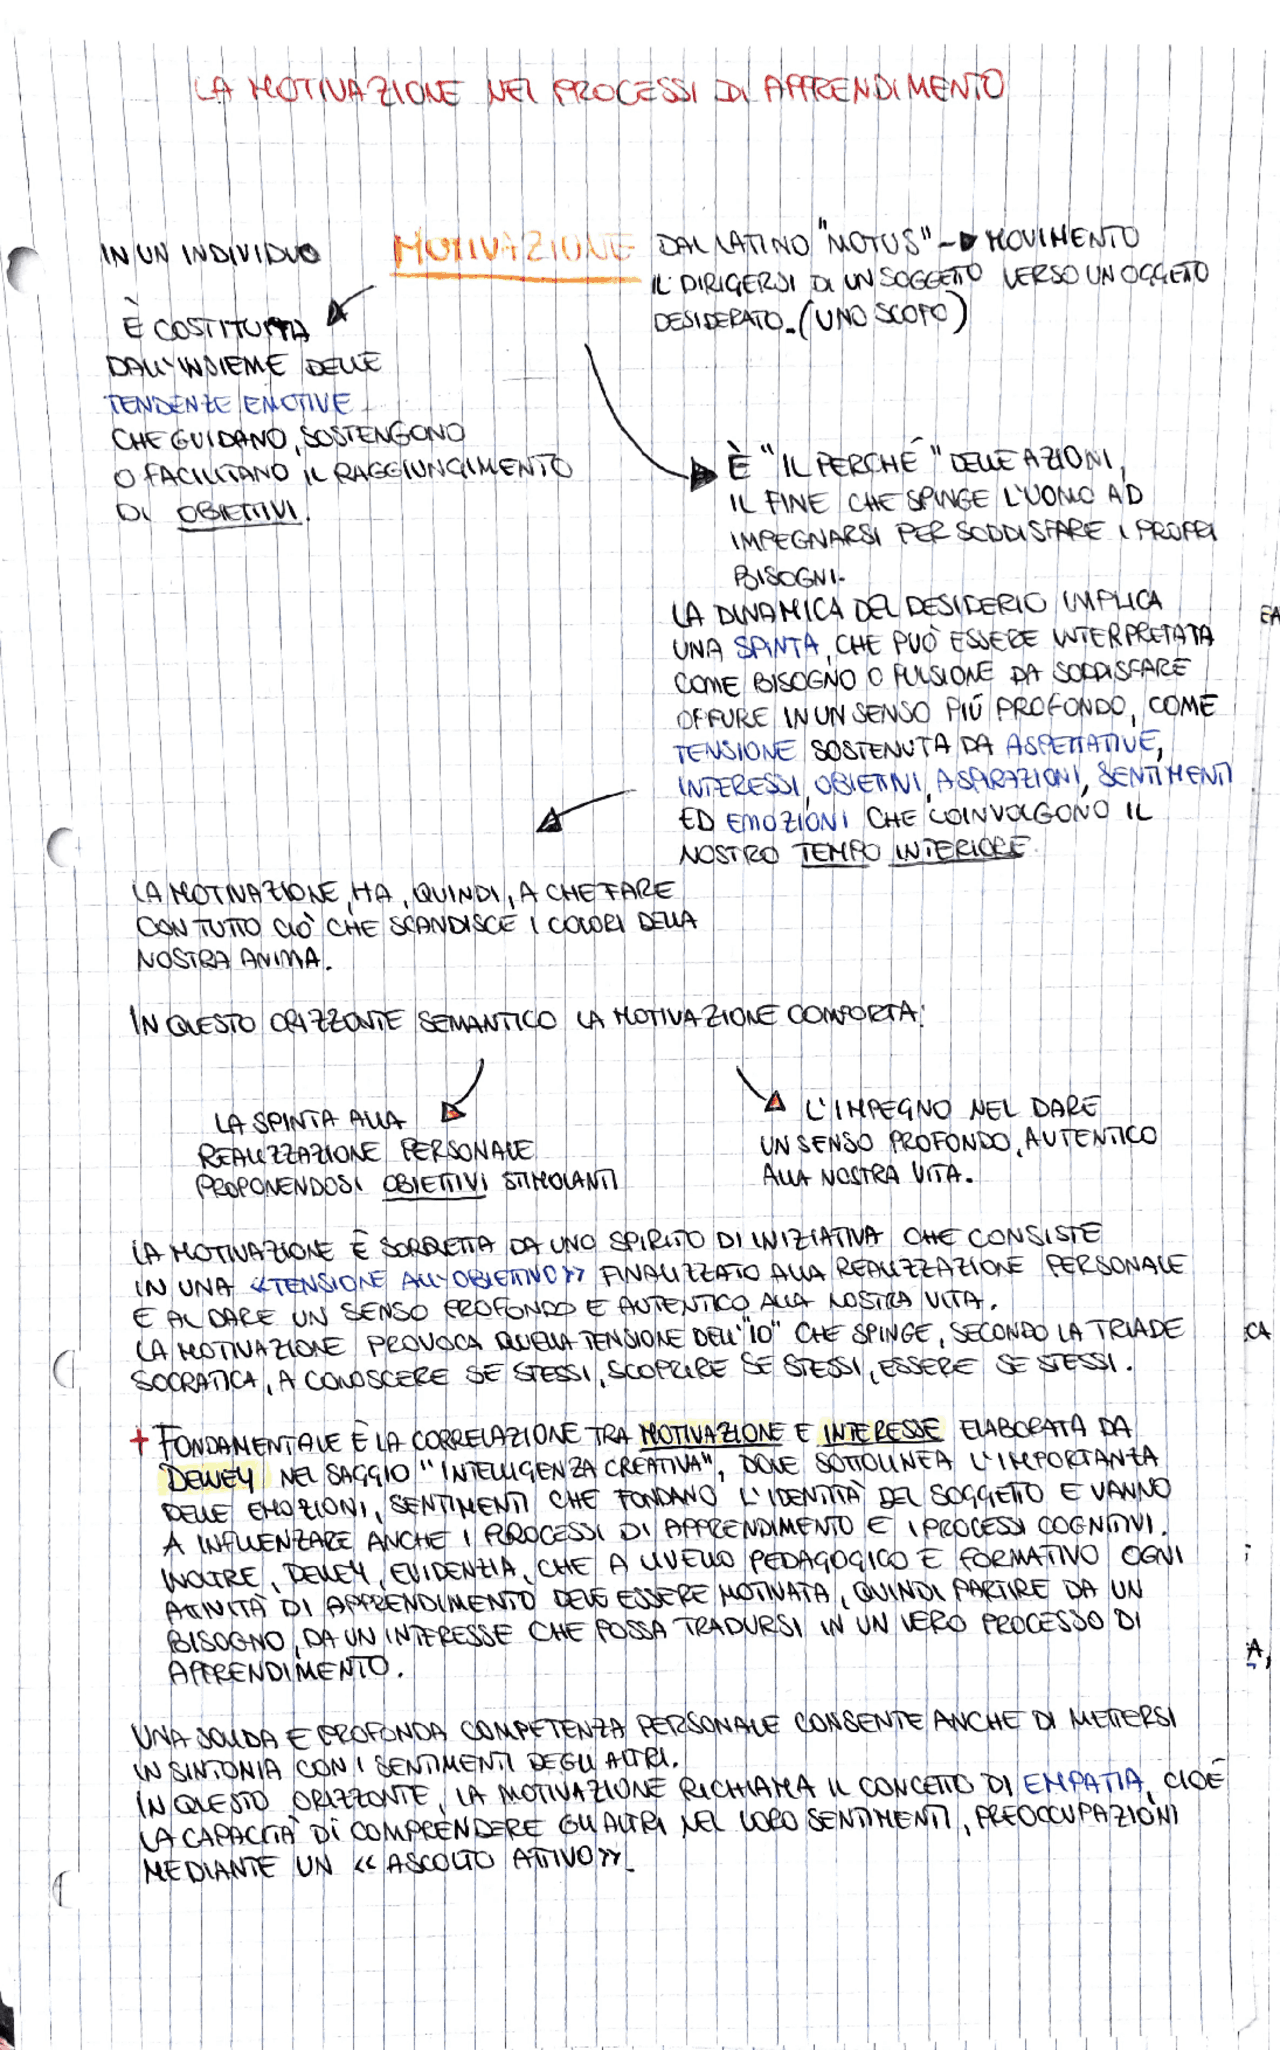 LA MOTIVAZIONE NEI PROCESSI DI APPRENDIMENTO
IN UN INDIVIDUO
MOTIVAZIONE
DAL LATINO "MOTUS" → MOVIMENTO
IL DIRIGERSI DI UN SOGGETTO VERSO UN OGGETTO
DESIDERATO. (UNO SCOPO)
È COSTITUITA
DALL'INSIEME DELLE
TENDENZE EMOTIVE
CHE GUIDANO, SOSTENGONO
O FACILITANO IL RAGGIUNGIMENTO
DI OBIETTIVI.
È "IL PERCHÉ" DELLE AZIONI,
IL FINE CHE SPINGE L'UOMO AD
IMPEGNARSI PER SODDISFARE I PROPRI
BISOGNI.
LA DINAMICA DEL DESIDERIO IMPLICA
UNA SPINTA, CHE PUÒ ESSERE INTERPRETATA
COME BISOGNO O PULSIONE DA SODDISFARE
OPPURE IN UN SENSO PIÚ PROFONDO, COME
TENSIONE SOSTENUTA DA ASPETTATIVE,
INTERESSI, OBIETTIVI, ASPIRAZIONI, SENTIMENTI
ED EMOZIONI CHE COINVOLGONO IL
NOSTRO TEMPO INTERIORE.
LA MOTIVAZIONE, HA, QUINDI, A CHE FARE
CON TUTTO CIÒ CHE SCANDISCE I COLORI DELLA
NOSTRA ANIMA.
IN QUESTO ORIZZONTE SEMANTICO LA MOTIVAZIONE COMPORTA:
LA SPINTA ALLA
REALIZZAZIONE PERSONALE
PROPONENDOSI OBIETTIVI STIMOLANTI
L'IMPEGNO NEL DARE
UN SENSO PROFONDO, AUTENTICO
ALLA NOSTRA VITA.
LA MOTIVAZIONE È SORRETTA DA UNO SPIRITO DI INIZIATIVA CHE CONSISTE
IN UNA «TENSIONE ALL'OBIETTIVO» FINALIZZATO ALLA REALIZZAZIONE PERSONALE
E AL DARE UN SENSO PROFONDO E AUTENTICO ALLA NOSTRA VITA.
LA MOTIVAZIONE PROVOCA QUELLA TENSIONE DELL'"IO" CHE SPINGE, SECONDO LA TRIADE
SOCRATICA, A CONOSCERE SE STESSI, SCOPRIRE SE STESSI, ESSERE SE STESSI.
+ FONDAMENTALE È LA CORRELAZIONE TRA MOTIVAZIONE E INTERESSE ELABORATA DA
DEWEY NEL SAGGIO "INTELLIGENZA CREATIVA", DOVE SOTTOLINEA L'IMPORTANZA
DELLE EMOZIONI, SENTIMENTI CHE FONDANO L'IDENTITÀ DEL SOGGETTO E VANNO
A INFLUENZARE ANCHE I PROCESSI DI APPRENDIMENTO E I PROCESSI COGNITIVI.
INOLTRE, DEWEY, EVIDENZIA, CHE A LIVELLO PEDAGOGICO E FORMATIVO OGNI
ATTIVITÀ DI APPRENDIMENTO DEVE ESSERE MOTIVATA, QUINDI PARTIRE DA UN
BISOGNO, DA UN INTERESSE CHE POSSA TRADURSI IN UN VERO PROCESSO DI
APPRENDIMENTO.
UNA SOLIDA E PROFONDA COMPETENZA PERSONALE CONSENTE ANCHE DI METTERSI
IN SINTONIA CON I SENTIMENTI DEGLI ALTRI.
IN QUESTO ORIZZONTE, LA MOTIVAZIONE RICHIAMA IL CONCETTO DI EMPATIA, CIOÈ
LA CAPACITÀ DI COMPRENDERE GLI ALTRI NEI LORO SENTIMENTI, PREOCCUPAZIONI
MEDIANTE UN «ASCOLTO ATTIVO».